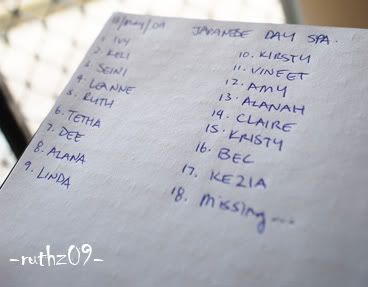 11/May/09 JAPANESE DAY SPA.
1. IVY
2. KELI
3. SEINI
4. LEANNE
5. RUTH
6. TETHA
7. DEE
8. ALANA
9. LINDA
10. KIRSTY
11. VINEET
12. AMY
13. ALANAH
14. CLAIRE
15. KRISTY
16. BEC
17. KEZIA
18. Missing...
-ruthz09-